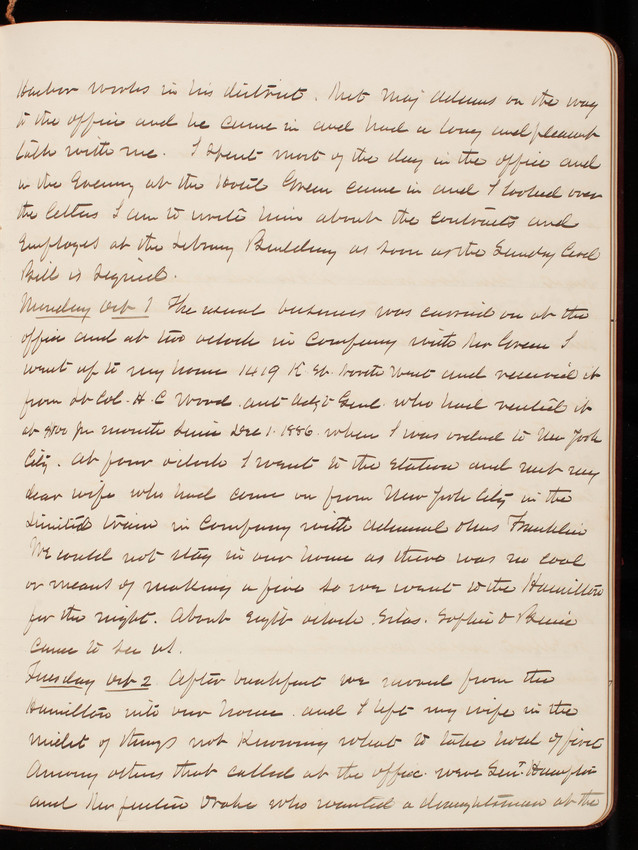 Harbor works in his district. Met Maj Adams on the way
to the office and he came in and had a long and pleasant
talk with me. I spent most of the day in the office and
in the Evening at the Hotel Green came in and I looked over
the letters I am to write him about the contracts and
Employes at the Library Building as soon as the Sunday Civil
Bill is signed.
Monday Oct 1 The usual business was carried on at the
office and at two oclock in Company with Mr Green I
went up to my home 1419 K St. North West and received it
from Lt Col. H. C Wood. ast Adjt Genl. who had rented it
at per month since Dec 1. 1886. when I was ordered to New York
City. At four oclock I went to the station and met my
dear wife who had come on from New York City in the
Limited train in Company with Admiral Franklin
We could not stay in our home as there was no coal
or means of making a fire so we went to the Hamilton
for the night. About Eight oclock. Silas. Sophie &
came to see us.
Tuesday Oct 2 After breakfast we moved from the
Hamilton into our home. and I left my wife in the
midst of things not Knowing what to take hold of first
Among others that called at the office. were Genl. Hampton
and Mr Drake who wanted a draughtsman at the